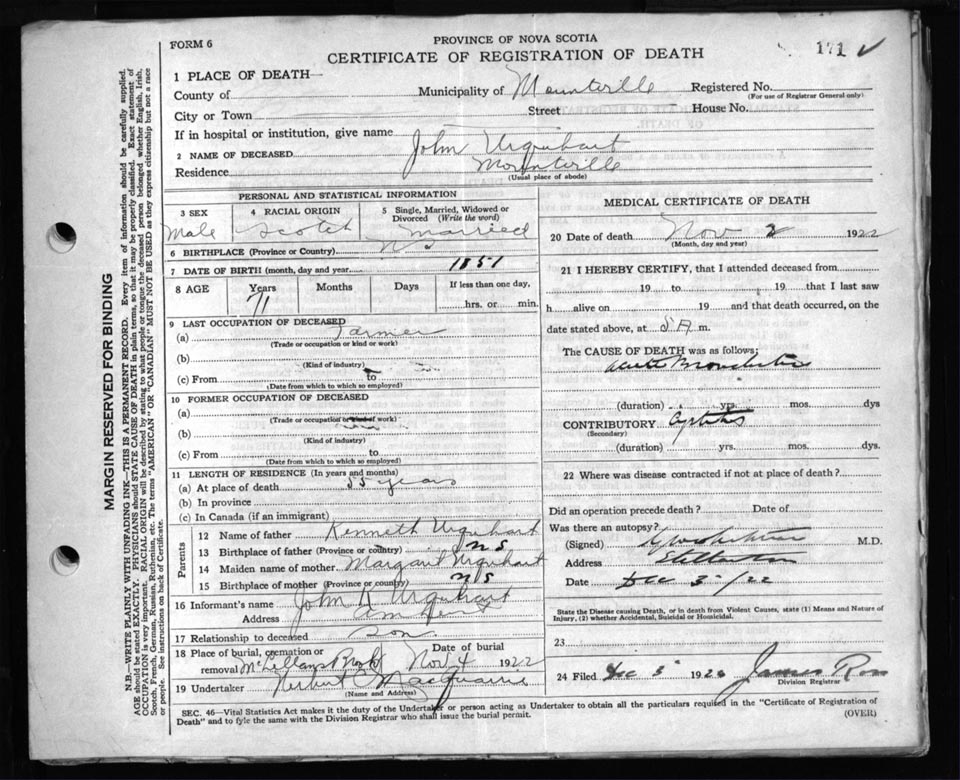 FORM 6
PROVINCE OF NOVA SCOTIA
CERTIFICATE OF REGISTRATION OF DEATH
171 ✓
1 PLACE OF DEATH—
County of
Municipality of Mountville
Registered No.
(For use of Registrar General only)
City or Town
Street
House No.
If in hospital or institution, give name
2 NAME OF DECEASED John Urquhart
Residence Mountville
(Usual place of abode)
PERSONAL AND STATISTICAL INFORMATION
3 SEX
Male
4 RACIAL ORIGIN
Scotch
5 Single, Married, Widowed or Divorced (Write the word)
married
6 BIRTHPLACE (Province or Country) N S
7 DATE OF BIRTH (month, day and year) 1851
8 AGE
Years
71
Months
Days
If less than one day,
hrs. or min.
9 LAST OCCUPATION OF DECEASED
(a) Farmer
(Trade or occupation or kind or work)
(b)
(Kind of industry)
(c) From to
(Date from which to which so employed)
10 FORMER OCCUPATION OF DECEASED
(a)
(Trade or occupation or kind of work)
(b)
(Kind of industry)
(c) From to
(Date from which to which so employed)
11 LENGTH OF RESIDENCE (In years and months)
(a) At place of death 55 years
(b) In province
(c) In Canada (if an immigrant)
Parents
12 Name of father Kenneth Urquhart
13 Birthplace of father (Province or country) N S
14 Maiden name of mother Margaret Urquhart
15 Birthplace of mother (Province or country) N S
16 Informant's name John K Urquhart
Address
17 Relationship to deceased son
18 Place of burial, cremation or
removal McLellans Brook
Date of burial
Nov 4 1922
19 Undertaker Herbert C MacQuarrie
(Name and Address)
MEDICAL CERTIFICATE OF DEATH
20 Date of death Nov 2 1922
(Month, day and year)
21 I HEREBY CERTIFY, that I attended deceased from
19 to 19 that I last saw
h alive on 19 and that death occurred, on the
date stated above, at 5 A. m.
The CAUSE OF DEATH was as follows:
Acute Bronchitis
(duration) yrs. mos. dys
CONTRIBUTORY Cystitis
(Secondary)
(duration) yrs. mos. dys.
22 Where was disease contracted if not at place of death?
Did an operation precede death? Date of
Was there an autopsy?
(Signed) M.D.
Address Stellarton
Date Dec 5/22
State the Disease causing Death, or in death from Violent Causes, state (1) Means and Nature of
Injury, (2) whether Accidental, Suicidal or Homicidal.
23
24 Filed Dec 5 192
James Ross
Division Registrar
SEC. 46—Vital Statistics Act makes it the duty of the Undertaker or person acting as Undertaker to obtain all the particulars required in the "Certificate of Registration of
Death" and to fyle the same with the Division Registrar who shall issue the burial permit.
(OVER)
MARGIN RESERVED FOR BINDING
N.B.—WRITE PLAINLY WITH UNFADING INK—THIS IS A PERMANENT RECORD. Every item of information should be carefully supplied.
AGE should be stated EXACTLY. PHYSICIANS should STATE CAUSE OF DEATH in plain terms, so that it may be properly classified. Exact statement of
OCCUPATION is very important. RACIAL ORIGIN will be described by stating to what people or tongue the deceased person belonged whether English, Irish,
Scotch, French, German, Russian, Ruthenian, etc. The terms "AMERICAN" OR "CANADIAN" MUST NOT BE USED as they express citizenship but not a race
or people. See instructions on back of Certificate.